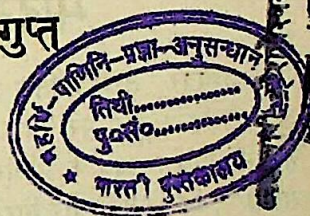 गुप्त
महर्षि-पाणिनि-प्रज्ञा-अनुसन्धान
तिथी................
पु०सं०................
भारती पुस्तकालय